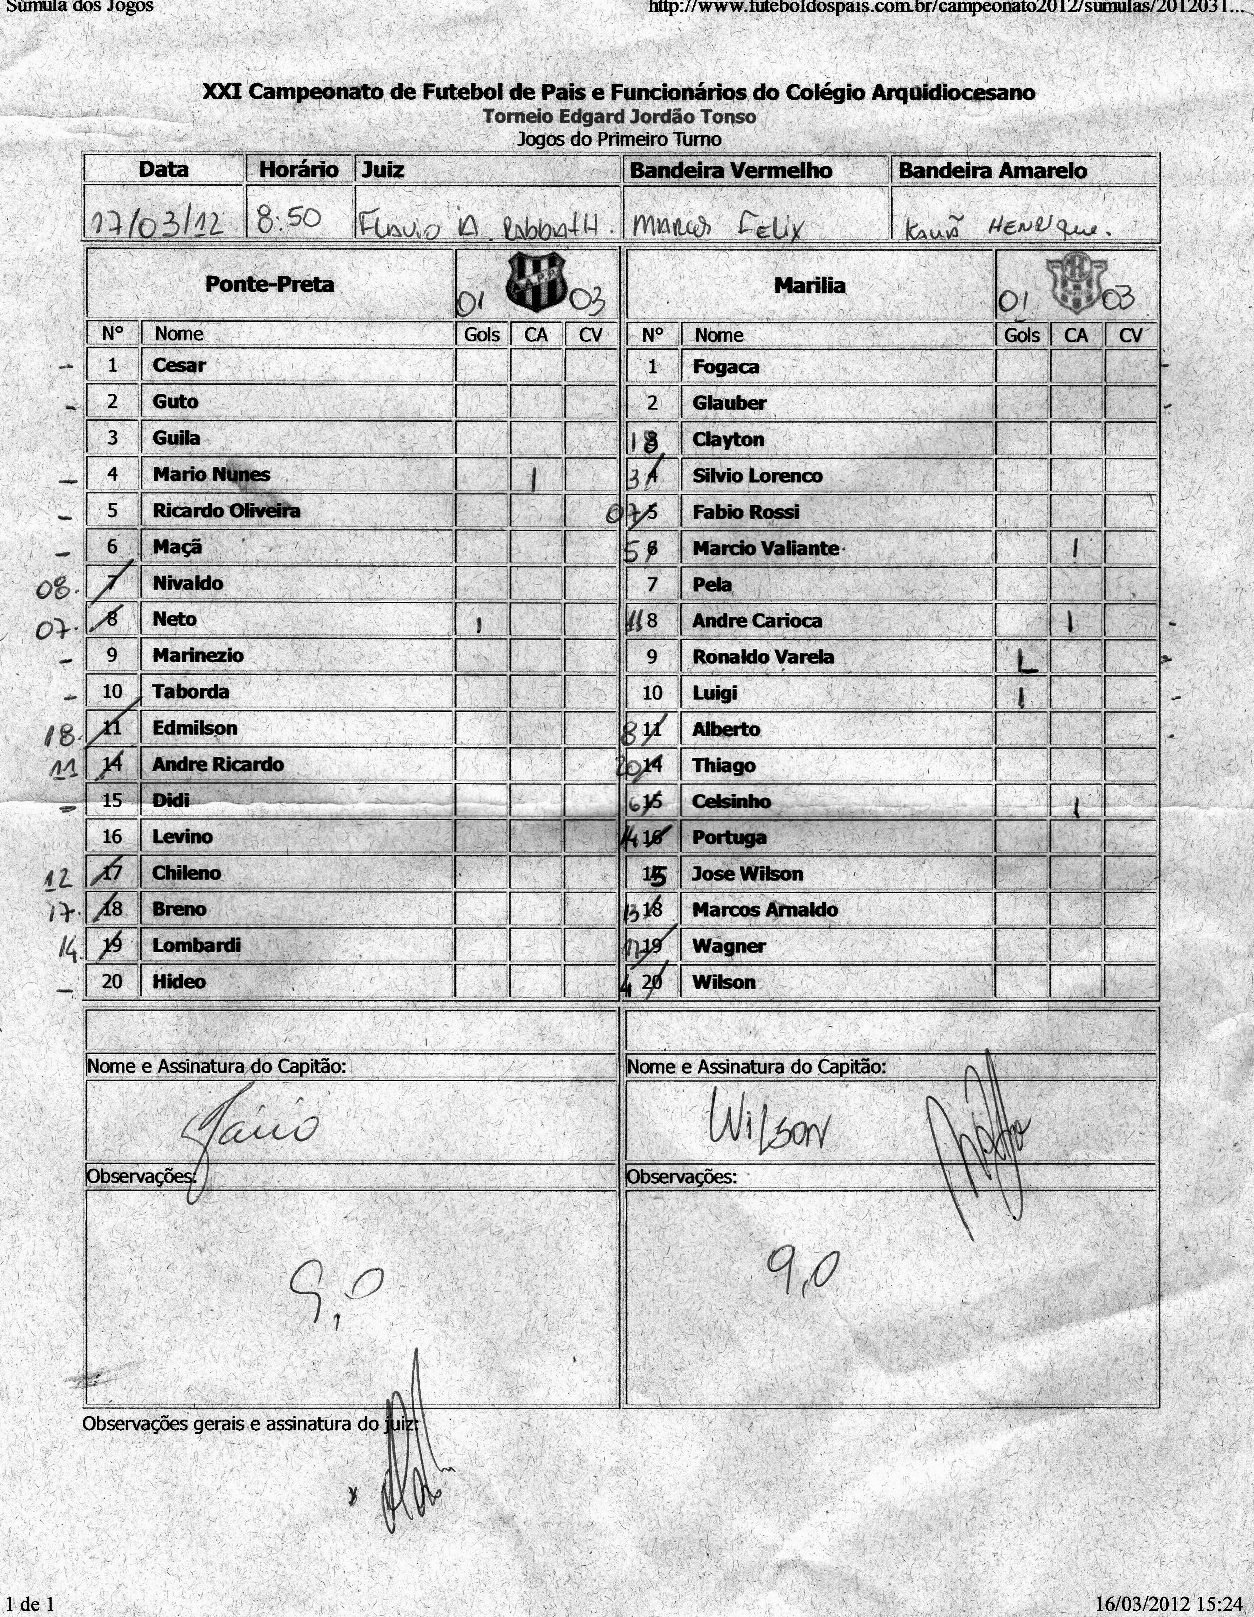 Súmula dos Jogos http://www.futeboldospais.com.br/campeonato2012/sumulas/2012031...
XXI Campeonato de Futebol de Pais e Funcionários do Colégio Arquidiocesano
Torneio Edgard Jordão Tonso
Jogos do Primeiro Turno
Data Horário Juiz Bandeira Vermelho Bandeira Amarelo
17/03/12 8:50 Flavio A. Rabbath. Marcos Felix Kauã Henrique.
Ponte-Preta 01 03 Marilia 01 03
Nº Nome Gols CA CV Nº Nome Gols CA CV
- 1 Cesar 1 Fogaca -
- 2 Guto 2 Glauber -
3 Guila 18 Clayton
- 4 Mario Nunes I 3 4 Silvio Lorenco
- 5 Ricardo Oliveira 07 5 Fabio Rossi
- 6 Maçã 5 6 Marcio Valiante I
08. 7 Nivaldo 7 Pela
07. 8 Neto I 11 8 Andre Carioca I -
- 9 Marinezio 9 Ronaldo Varela L -
- 10 Taborda 10 Luigi I -
18. 11 Edmilson 8 11 Alberto -
11 14 Andre Ricardo 20 14 Thiago
- 15 Didi 6 15 Celsinho I
16 Levino 14 16 Portuga
12 17 Chileno 15 Jose Wilson
17. 18 Breno 13 18 Marcos Arnaldo
14. 19 Lombardi 17 19 Wagner
- 20 Hideo 4 20 Wilson
Nome e Assinatura do Capitão: Nome e Assinatura do Capitão:
Wilson
Observações: Observações:
9,0 9,0
Observações gerais e assinatura do juiz:
x
1 de 1 16/03/2012 15:24